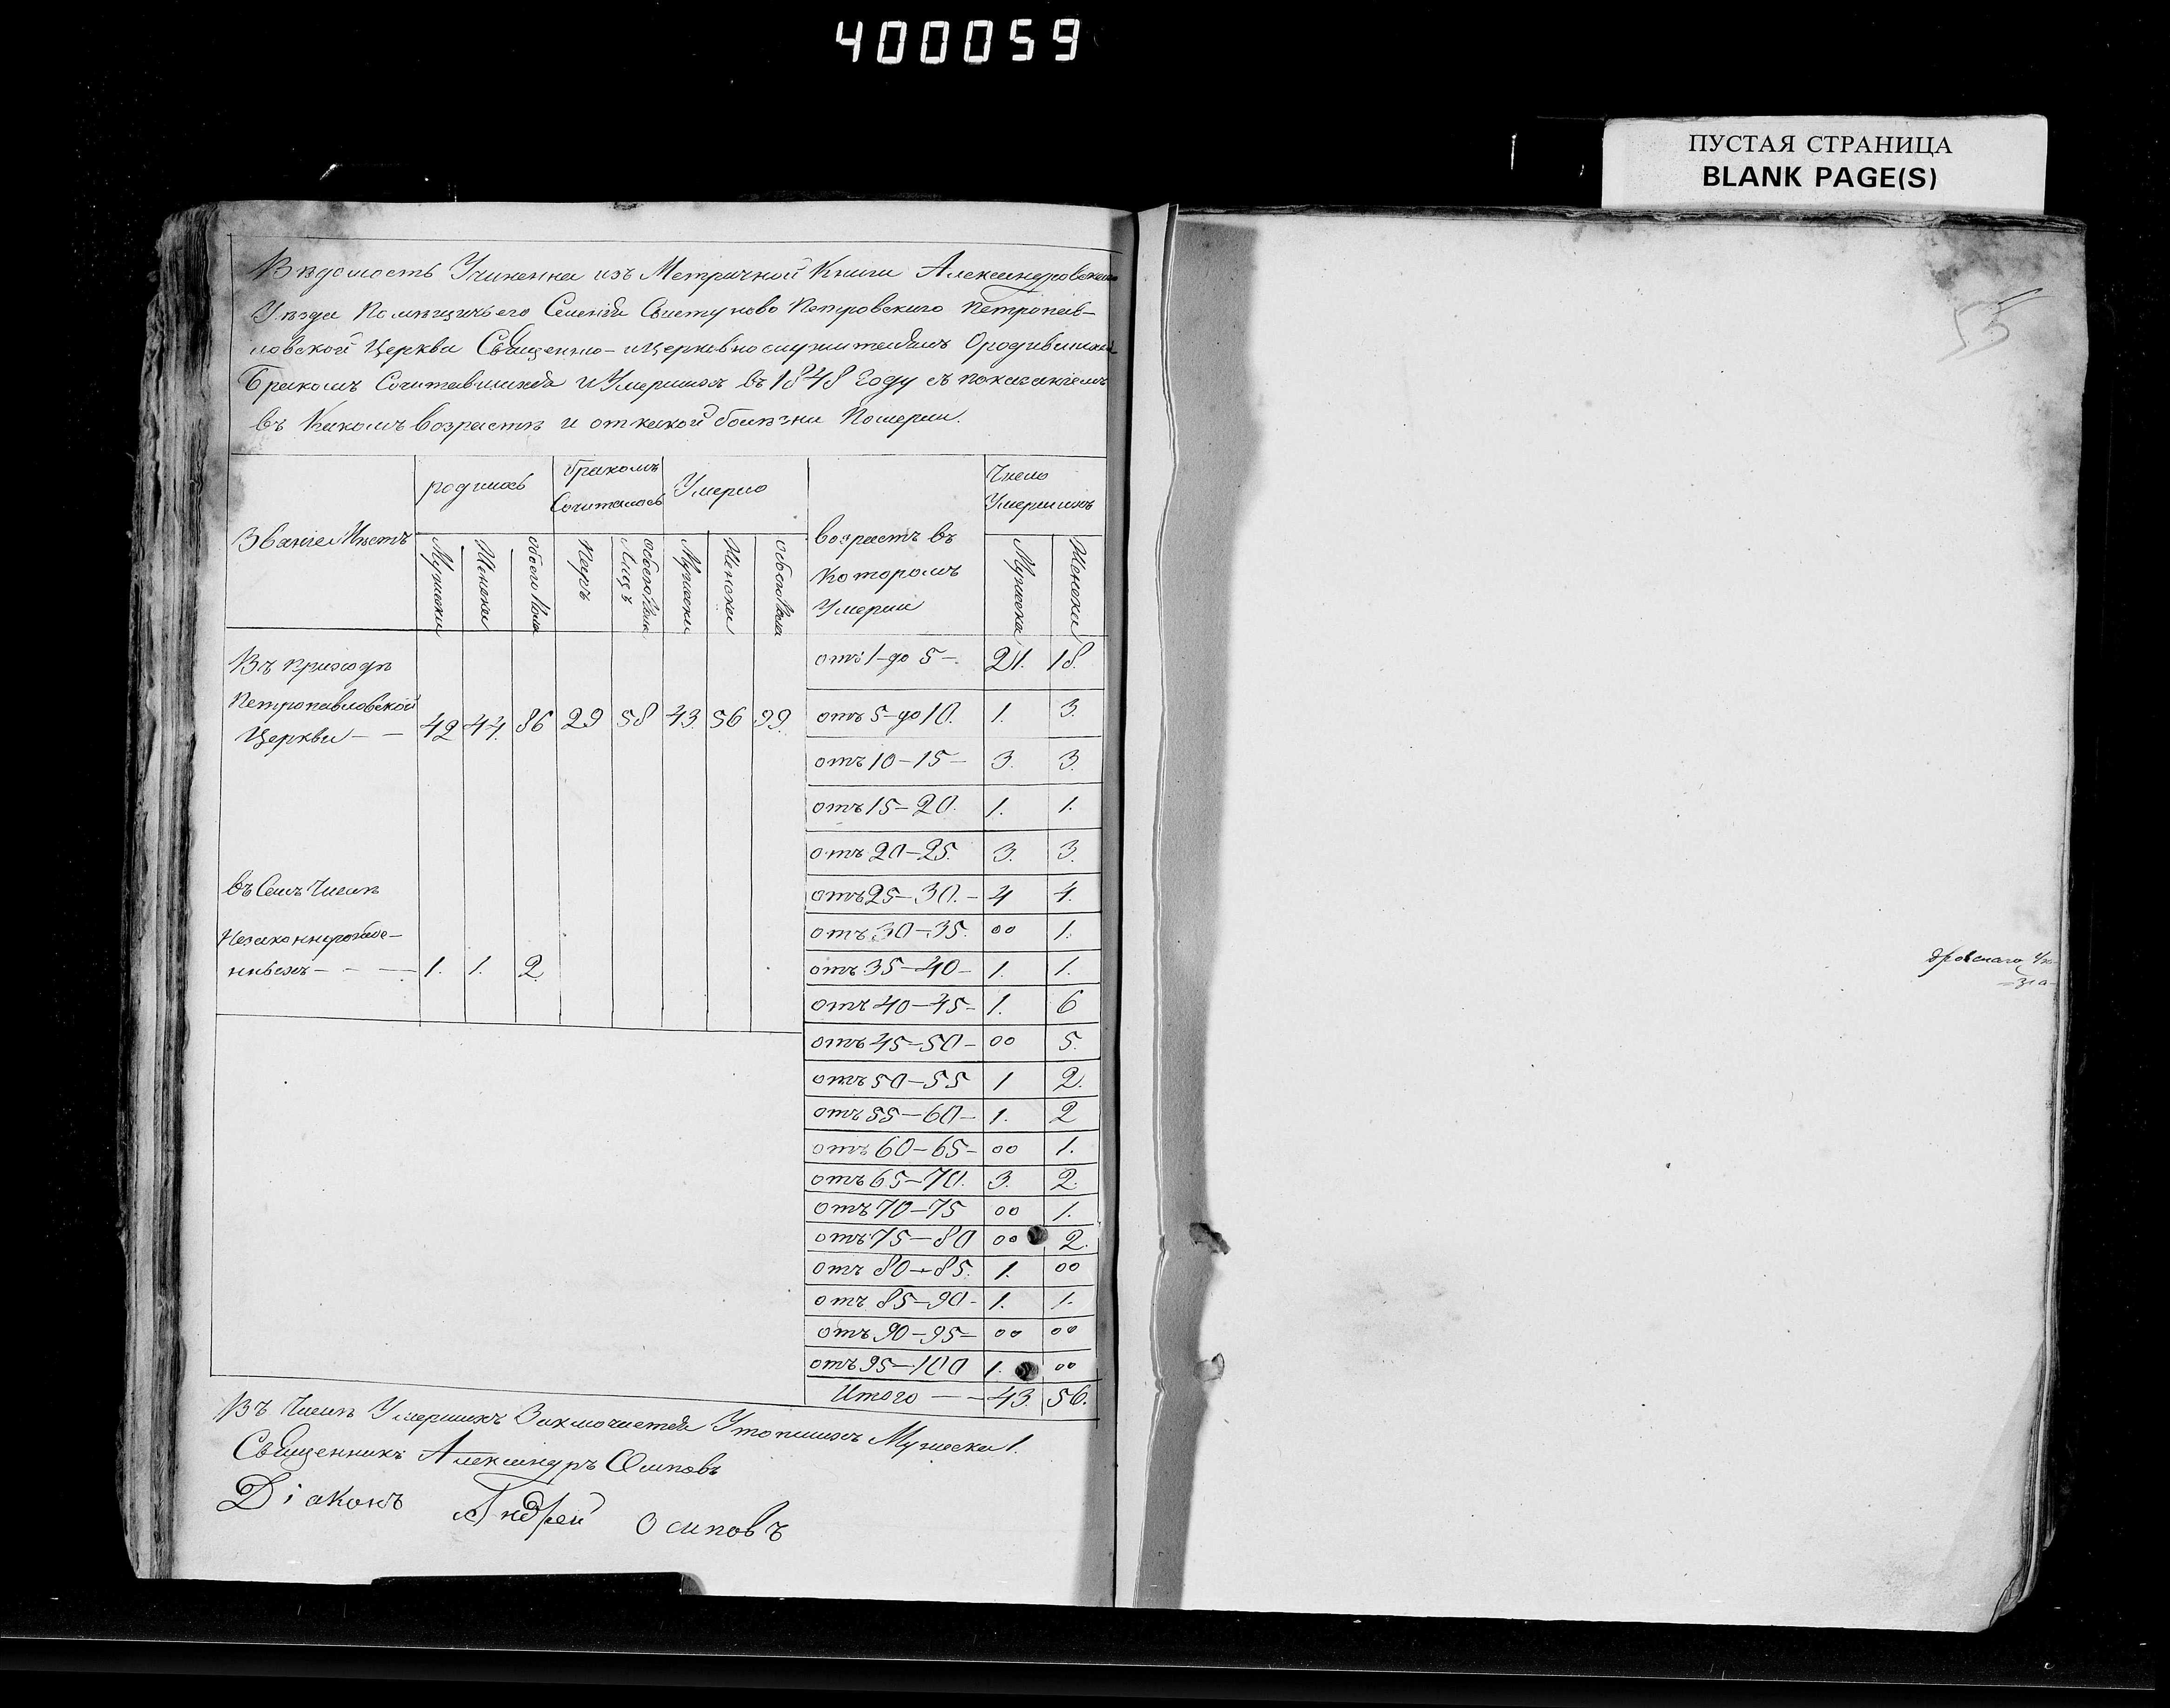 400059
ПУСТАЯ СТРАНИЦА
BLANK PAGE(S)
55
Вѣдомость Учиненна изъ Метричной Книги Александровскаго
Уѣзда Помѣщичьего Селенія Свистуново Петровскиго Петропав-
ловской Церкви Священно-ицерковнослужителямъ Ородившихся
Бракомъ Сочитавшихся и Умершихъ въ 1848 Году съ показаніемъ
въ Какомъ возрастѣ и от какой болѣзни Померли.
Званіе Мѣстъ
родилось
бракомъ Сочиталось
Умерло
возрастъ въ Которомъ Умерли
Число Умершихъ
Мужеска Женска обоего Пола Паръ Лицъ Мужеска Женска обоего Пола Мужеска Женска
Въ приходѣ
Петропавловской
Церкви – – 42 44. 86 29 58 43. 56 99.
отъ 1-до 5-. 21. 18.
отъ 5-до 10. 1. 3.
отъ 10-15- 3. 3.
отъ 15-20. 1. 1.
отъ 20-25. 3. 3.
въ Семъ Числѣ
отъ 25-30.- 4 4.
Незаконнорожде-
отъ 30-35. 00 1.
нныхъ - - - 1. 1. 2
отъ 35-40- 1. 1.
отъ 40-45- 1. 6
отъ 45-50- 00 5.
отъ 50-55 1 2.
отъ 55-60- 1. 2
отъ 60-65- 00 1.
отъ 65-70. 3. 2.
отъ 70-75 00 1.
отъ 75-80 00 2.
отъ 80-85. 1. 00
отъ 85-90- 1. 1.
отъ 90-95- 00 00
отъ 95-100 1. 00
Итого – – 43. 56.
Въ Числѣ Умершихъ Заключается Утопшихъ Мужеска 1.
Священникъ Александръ Осиповъ
Діаконъ Андрей Осиповъ
дровскаго Уѣ-
=зда